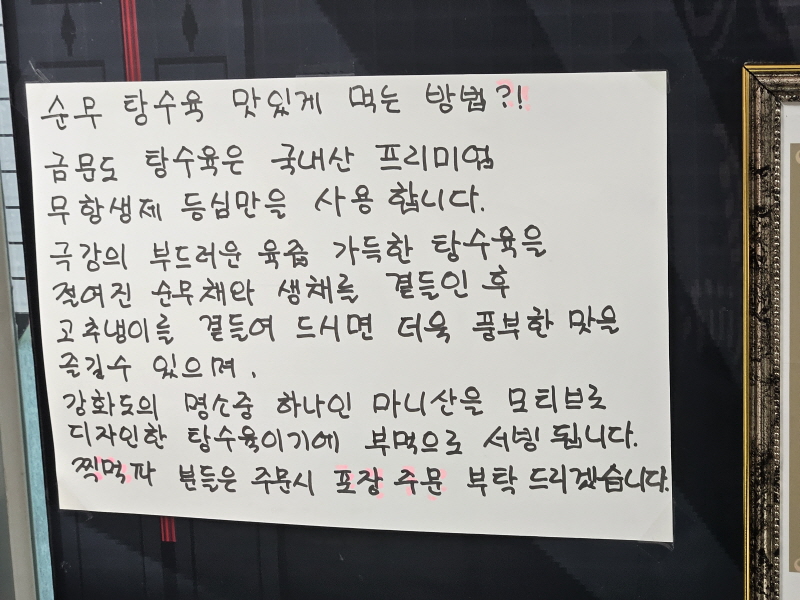 순무 탕수육 맛있게 먹는 방법?!
금문도 탕수육은 국내산 프리미엄
무항생제 등심만을 사용 합니다.
극강의 부드러운 육즙 가득한 탕수육을
절여진 순무채와 생채를 곁들인 후
고추냉이를 곁들여 드시면 더욱 풍부한 맛을
즐길수 있으며,
강화도의 명소중 하나인 마니산을 모티브로
디자인한 탕수육이기에 부먹으로 서빙 됩니다.
찍먹파 분들은 주문시 포장 주문 부탁 드리겠습니다.